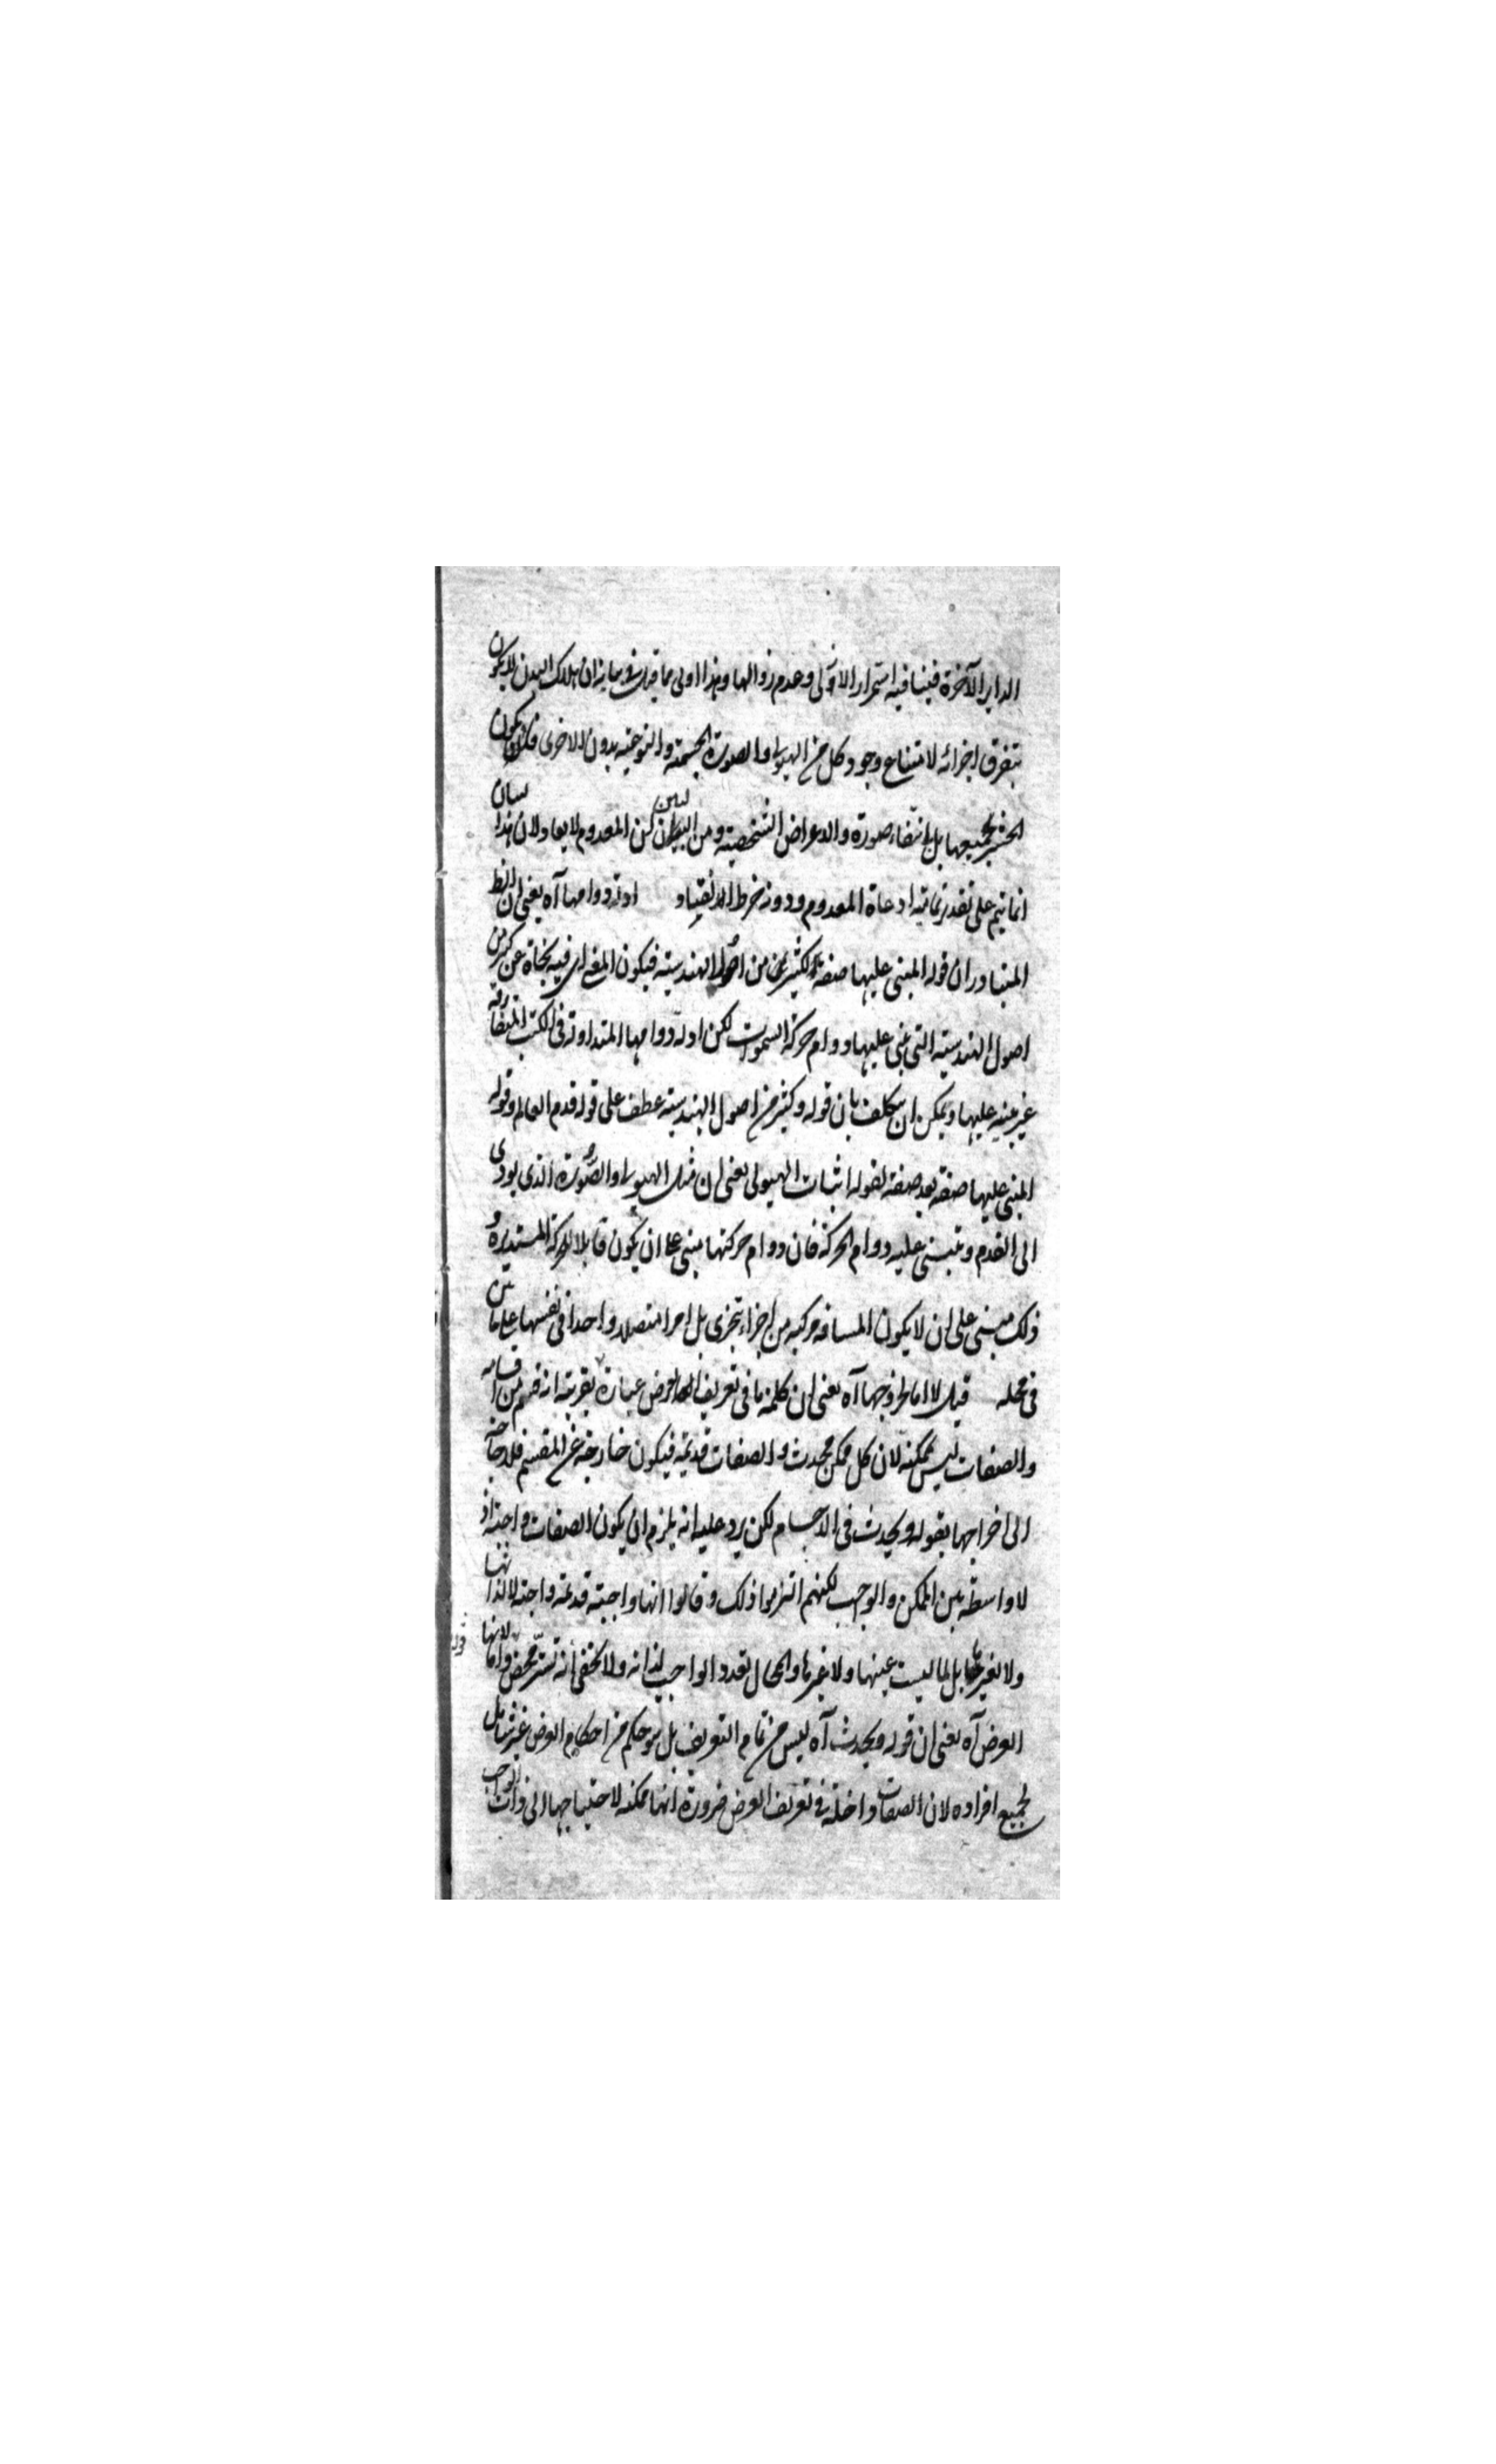 الدار الآخرة فينافيه استمرار الاولى وعدم زوالها وهذا اولى مما قيل في بيانه ان هلاك البدن لا يكون
بتفرق اجزائه لامتناع وجود كل من الهيولى والصورة الجسمية والنوعية بدون الاخرى فلا يكون
الحشر بجمعها بل بانتفاء صورة والاعراض الشخصية ومن البين ان المعدوم لا يعاد لان هذا البيان
انما يتم على تقدير تمامية اعادة المعدوم ودونه خرط القتاد ادلة دوامها آه يعني ان الظ
المتبادر ان قوله المبنى عليها صفة لكثير من اصول الهندسية فيكون المعنى اى فيه نجاة عن كثير من
اصول الهندسية التي يبنى عليها دوام حركة السموات لكن ادلة دوامها المتداولة في الكتب المتعارفة
غير مبنية عليها ويمكن ان يتكلف بان قوله وكثير من اصول الهندسية عطف على قوله قدم العالم وقوله
المبنى عليها صفة بعد صفة لقوله اثبات الهيولى يعنى ان مثل الهيولى والصورة الذى يودى
الى القدم ويبتنى عليه دوام الحركة فان دوام حركتها مبنى على ان يكون قابلا للحركة المستديرة و
ذلك مبنى على ان لا يكون المسافة مركبة من اجزاء تتجزى بل امرا متصلا واحدا في نفسها على ما بين
في محله قيل لا اما لخروجها آه يعنى ان كلمة ما في تعريف العرض عبارة بقرينة انه قسم من اقسامه
والصفات ليس بممكنة لان كل ممكن محدث والصفات قديمة فيكون خارجة عن المقسم فلا حاجة
الى اخراجها بقوله ويحدث في الاجسام لكن يرد عليه انه يلزم ان يكون الصفات واجبة اذ
لا واسطة بين الممكن والواجب لكنهم التزموا ذلك وقالوا انها واجبة قديمة واجبة لا لذاتها
ولا لغيرها بل لما ليست عينها ولا غيرها والمحال تعدد الواجب لذاته ولا يخفى انه تستر محض واما لانها
العرض آه يعنى ان قوله ويحدث آه ليس من تمام التعريف بل هو حكم من احكام العرض غير شامل
لجميع افراده لان الصفات داخلة في تعريف العرض ضرورة انها ممكنة لاحتياجها الى ذات الواجب
قوله